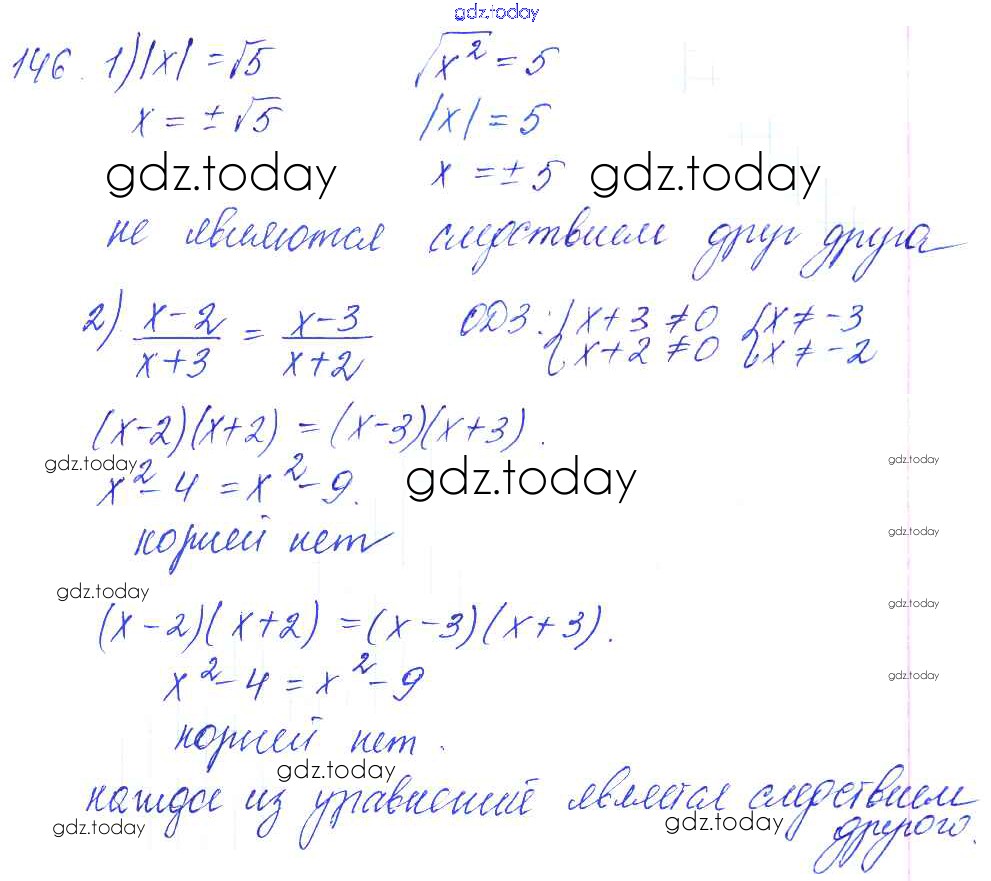 gdz.today
146. 1) |x| = √5    √x² = 5
x = ±√5    |x| = 5
gdz.today    x = ±5    gdz.today
не являются следствием друг друга
2) (x-2)/(x+3) = (x-3)/(x+2)    ОДЗ: { x+3 ≠ 0    { x ≠ -3
x+2 ≠ 0    x ≠ -2
(x-2)(x+2) = (x-3)(x+3).
gdz.today    gdz.today    gdz.today
x² - 4 = x² - 9.
корней нет    gdz.today
gdz.today    gdz.today
(x-2)(x+2) = (x-3)(x+3).
x² - 4 = x² - 9    gdz.today
корней нет.
gdz.today
каждое из уравнений является следствием
gdz.today    gdz.today    другого.